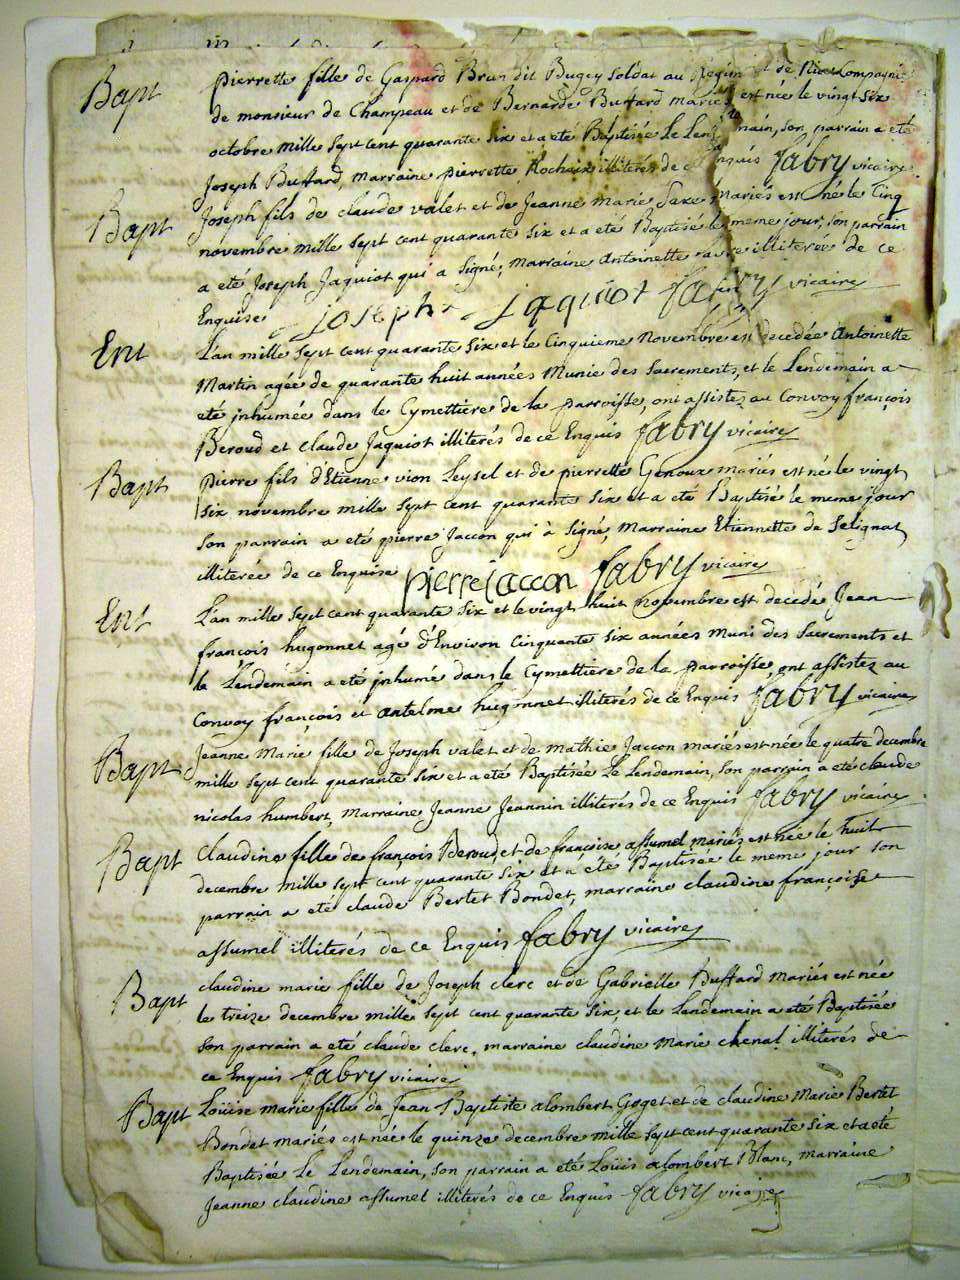 Bapt pierrette fille de Gaspard Brun dit Bugey soldat au Regim de Nice Compagnie
de monsieur de Champeau et de Bernarde Buffard mariés est née le vingt six
octobre mille sept cent quarante six et a été Baptisée Le Lendemain, son parrain a été
Joseph Buffard, marraine pierrette Rochaix illiterés de ce Enquis fabry vicaire
Bapt Joseph fils de claude valet et de Jeanne marie mariés est né le Cinq
novembre mille sept cent quarante six et a été Baptisé le meme jour, son parrain
a été Joseph Jaquiot qui a signé, marraine Antoinette illiterée de ce
Enquise joseph jaquiot fabry vicaire
Ent L'an mille sept cent quarante six et le Cinquieme Novembre est decedée Antoinette
Martin agée de quarante huit années Munie des Sacrements, et le Lendemain a
eté jnhumée dans le Cymettiere de la parroisse, ont assistez au Convoy françois
Beroud et claude Jaquiot illiterés de ce Enquis fabry vicaire
Bapt pierre fils d'Etienne vion Leysel et de pierrette Genoux mariés est né le vingt
six novembre mille sept cent quarante six et a été Baptisé le meme jour
son parrain a eté pierre Jaccon qui à signé, marraine Etiennette de Selignat
illiterée de ce Enquise pierre jaccon fabry vicaire
Ent L'an mille sept cent quarante six et le vingt huit novembre est decedé Jean
françois hugonnet agé d'Environ Cinquante six années muni des Sacrements et
le Lendemain a eté jnhumé dans le Cymettiere de la parroisse, ont assistez au
Convoy françois et antelme hugonnet illiterés de ce Enquis fabry vicaire
Bapt Jeanne Marie fille de Joseph valet et de mathie Jaccon mariés est née le quatre decembre
mille sept cent quarante six et a eté Baptisée Le Lendemain, son parrain a eté claude
nicolas humbert, marraine Jeanne Jeannin illiterés de ce Enquis fabry vicaire
Bapt claudine fille de françois Beroud et de françoise assumel mariés est née le huit
decembre mille sept cent quarante six et a été Baptisée le meme jour son
parrain a eté claude Bertet Bondet, marraine claudine françoise
assumel illiterés de ce Enquis fabry vicaire
Bapt claudine marie fille de Joseph clerc et de Gabrielle Buffard mariés est née
le treize decembre mille sept cent quarante six et le Lendemain a eté Baptisée
son parrain a eté claude clerc, marraine claudine marie chenal illiterés de
ce Enquis fabry vicaire
Bapt Loüise marie fille de Jean Baptiste alombert Goget et de claudine Marie Bertet
Bondet mariés est née le quinze decembre mille sept cent quarante six et a eté
Baptisée Le Lendemain, son parrain a eté Loüis alombert Blanc, marraine
Jeanne claudine assumel illiterés de ce Enquis fabry vicaire